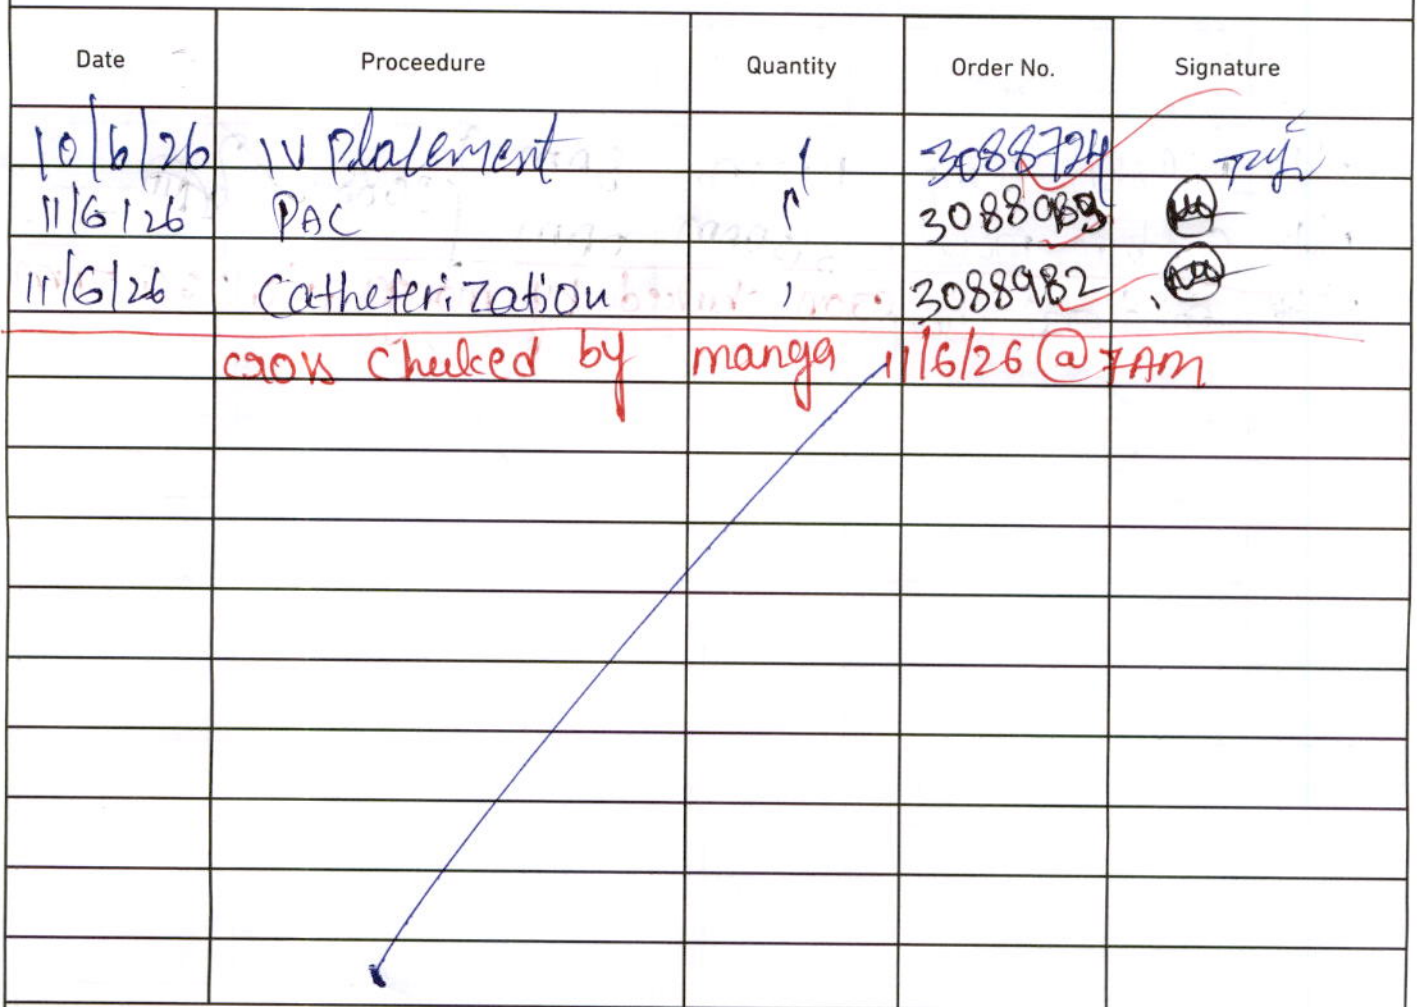 Date Proceedure Quantity Order No. Signature
10/6/26 IV Placement 1 3088724
11/6/26 PAC 1 3088983
11/6/26 Catheterization 1 3088982
cross Cheked by manga 11/6/26 @ 7AM